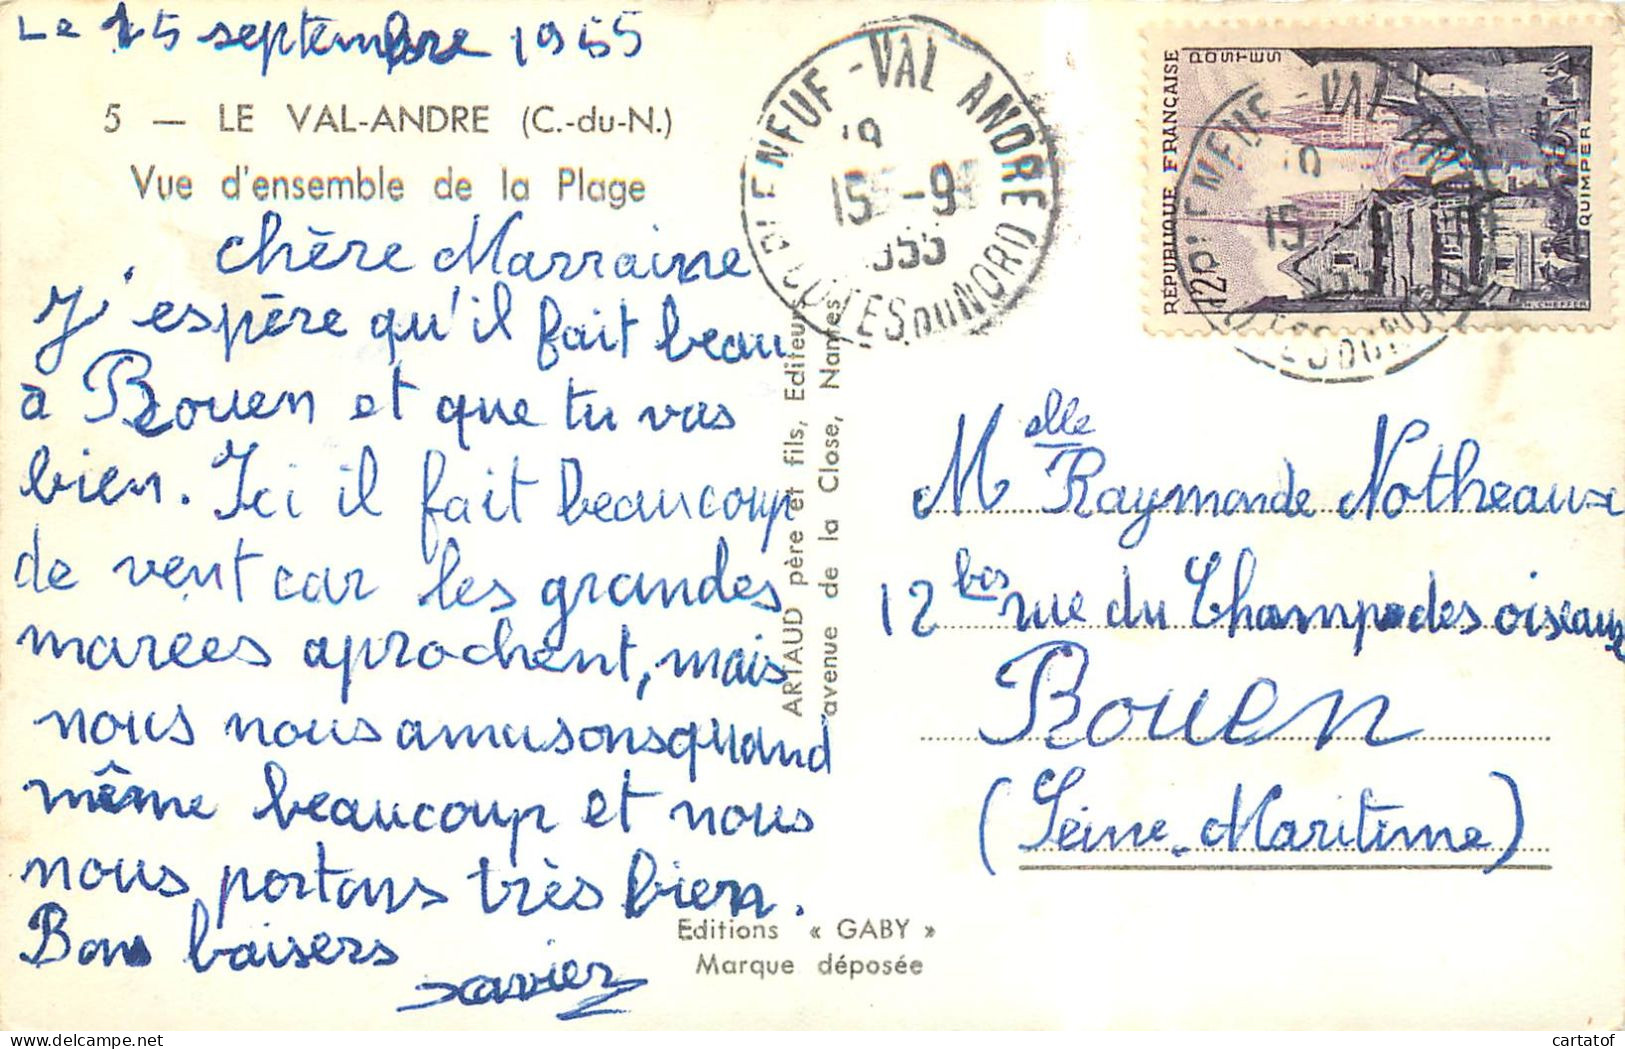 Le 15 septembre 1955
5 — LE VAL-ANDRE (C.-du-N.)
Vue d'ensemble de la Plage
chère Marraine
J'espère qu'il fait beau
à Rouen et que tu vas
bien. Ici il fait beaucoup
de vent car les grandes
marées aprochent, mais
nous nous amusons quand
même beaucoup et nous
nous portons très bien.
Bons baisers
xavier
ARTAUD père et fils, Editeurs
avenue de la Close, Nantes
Editions « GABY »
Marque déposée
PLENEUF-VAL ANDRE
19
15-9
1955
COTES DU NORD
RÉPUBLIQUE FRANÇAISE
POSTES
12F
QUIMPER
PLENEUF-VAL ANDRE
19
15
COTES DU NORD
Melle Raymonde Notheaux
12 bis rue du Champ des oiseaux
Rouen
(Seine-Maritime)
cartatof